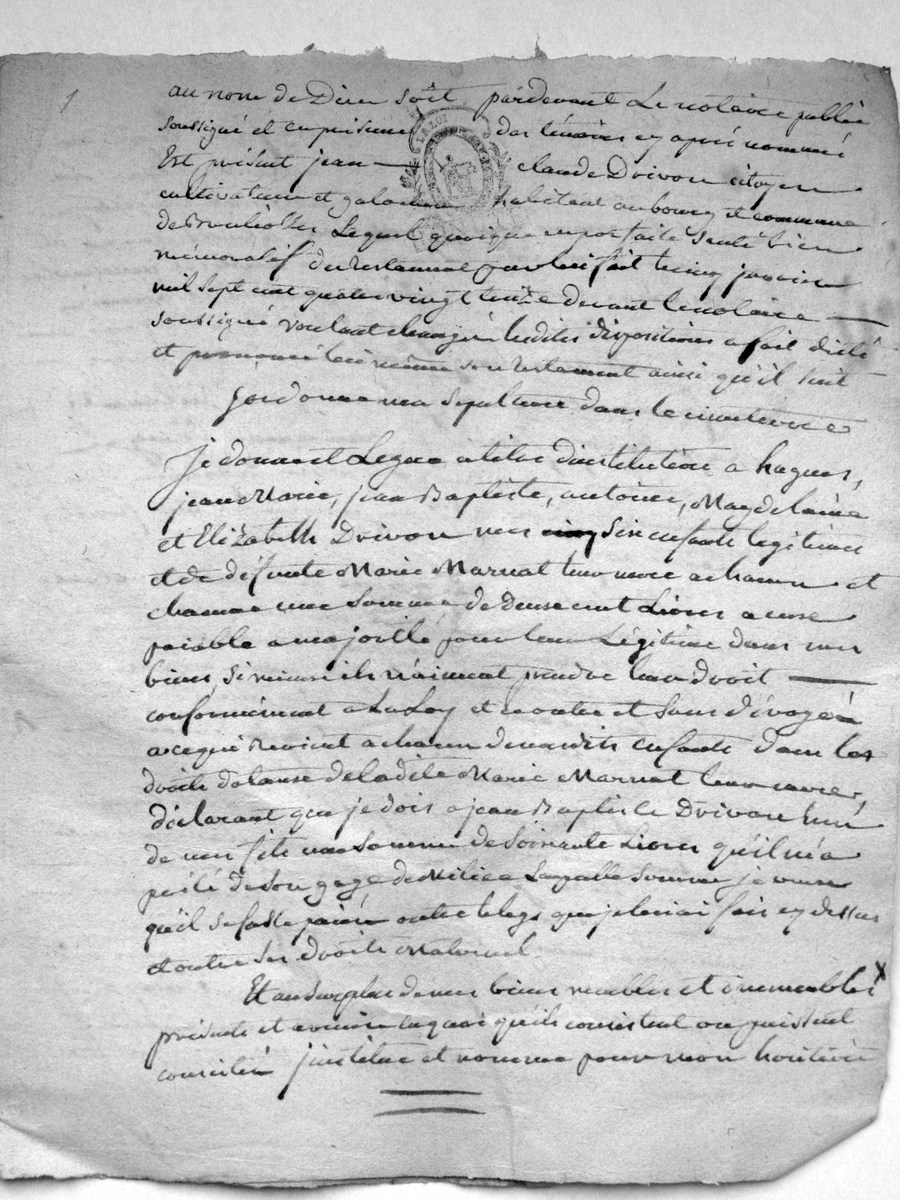 1
au nom de Dieu soit pardevant Le notaire public
soussigné et en présence des témoins cy après nommé
Est présent jean claude Drivon citoyen
cultivateur et habitant au bourg et commune
de Lequel quoique en parfaite santé bien
mémoratif du testament par lui fait le cinq janvier
mil sept cent quatre vingt treize devant le notaire
soussigné voulant changé lesdites dispositions a fait dicté
et prononcé lui même son testament ainsi qu'il suit
j'ordonne ma sépulture dans le cimetierre
Je donne et Legue a titre d'institution a hugues,
jean Marie, jean Baptiste, antoine, Magdelaine
et Elizabeth Drivon mes cinq six enfants legitimes
et de défunte Marie Marnat leur mere a chacun et
chacune une somme de deux cent Livres a eux
paiable a majorité pour leur Légitime dans mes
biens, si mieux ils n'aiment prendre leur droit
conformément a La Loy et en outre et sans dérogé
a ce qui Revient a chacun de mesdits enfants dans les
droits de ladite Marie Marnat leur mere,
déclarant que je dois a jean Baptiste Drivon l'un
de mes fils une somme de soixante Livres qu'il m'a
de son gage de Milice Laquelle somme je veux
qu'il se fasse paier outre le legs que je lui ai fais cy dessus
et outre ses droits Maternel.
Et au surplus de mes biens meubles et immeubles x
présents et avenir en quoi qu'ils consistent ou puissent
consister j'institue et nomme pour mon héritier